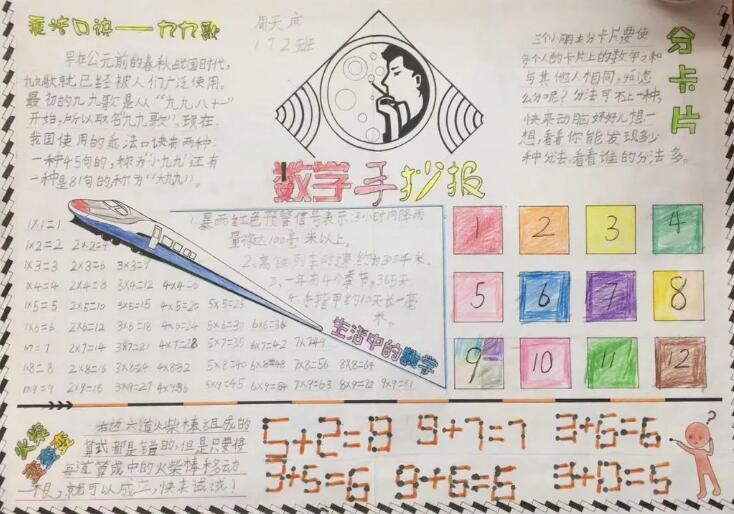 乘法口诀——九九歌
周天
172班
早在公元前的春秋战国时代,
九九歌就已经被人们广泛使用。
最初的九九歌是从“九九八十一”
开始,所以取名“九九歌”。现在,
我国使用的乘法口诀有两种:
一种45句的,称为“小九九”还有
一种是81句的称为“大九九”。
三个小朋友分卡片要使
每个人的卡片上的数字之和
与其他人相同,知怎
么分呢?分法可不止一种,
快来动脑好好儿想一
想,看看你能发现多少
种分法,看看谁的分法多。
分卡片
数学手抄报
1.暴雨红色预警信号表示:3小时内降雨
量将达100毫米以上。
2.高铁列车时速约为305千米。
3.一年有4个季节,365天
4.手指甲约10天长一毫
米
生活中的数学
1×1=1
1×2=2 2×2=4
1×3=3 2×3=6 3×3=9
1×4=4 2×4=8 3×4=12 4×4=16
1×5=5 2×5=10 3×5=15 4×5=20 5×5=25
1×6=6 2×6=12 3×6=18 4×6=24 5×6=30 6×6=36
1×7=7 2×7=14 3×7=21 4×7=28 5×7=35 6×7=42 7×7=49
1×8=8 2×8=16 3×8=24 4×8=32 5×8=40 6×8=48 7×8=56 8×8=64
1×9=9 2×9=18 3×9=27 4×9=36 5×9=45 6×9=54 7×9=63 8×9=72 9×9=81
1 2 3 4
5 6 7 8
9 10 11 12
火柴棒游戏
右边六道火柴棒组成的
算式都是错的,但是只要将
每道算式中的火柴棒移动
一根,就可以成立,快来试试!
5+2=8 9+7=7 3+6=6
3+5=6 9+6=6 3+0=5
?